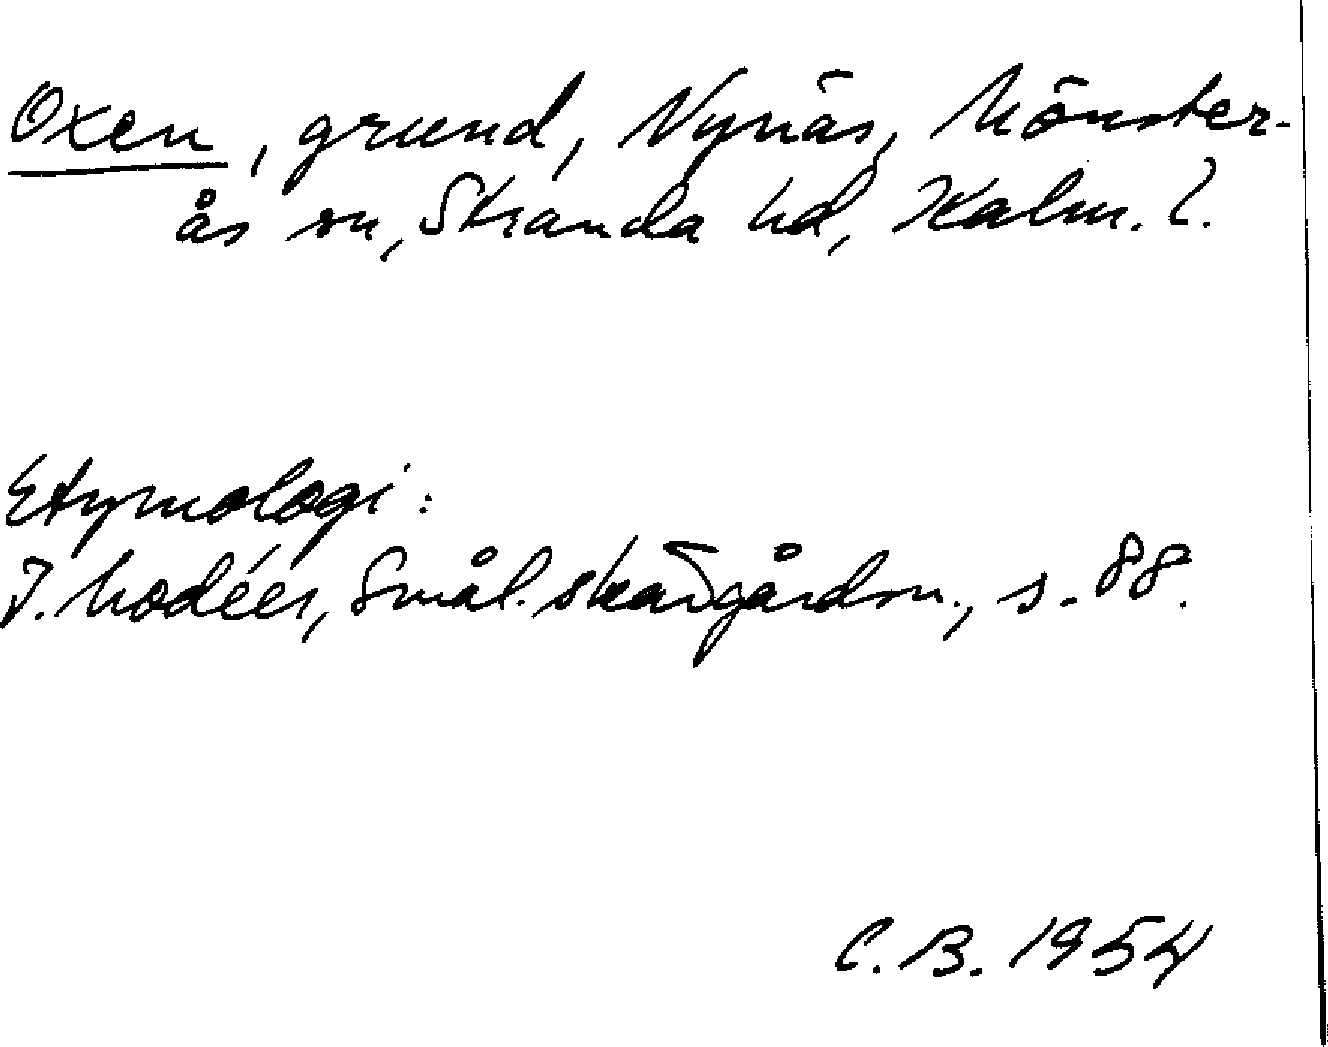 Oxen, grund, Nynäs, Mönster-
ås sn, Stranda hd, Kalm. l.
Etymologi:
I. Modéer, Smål. skärgårdsn., s. 88.
C. B. 1954